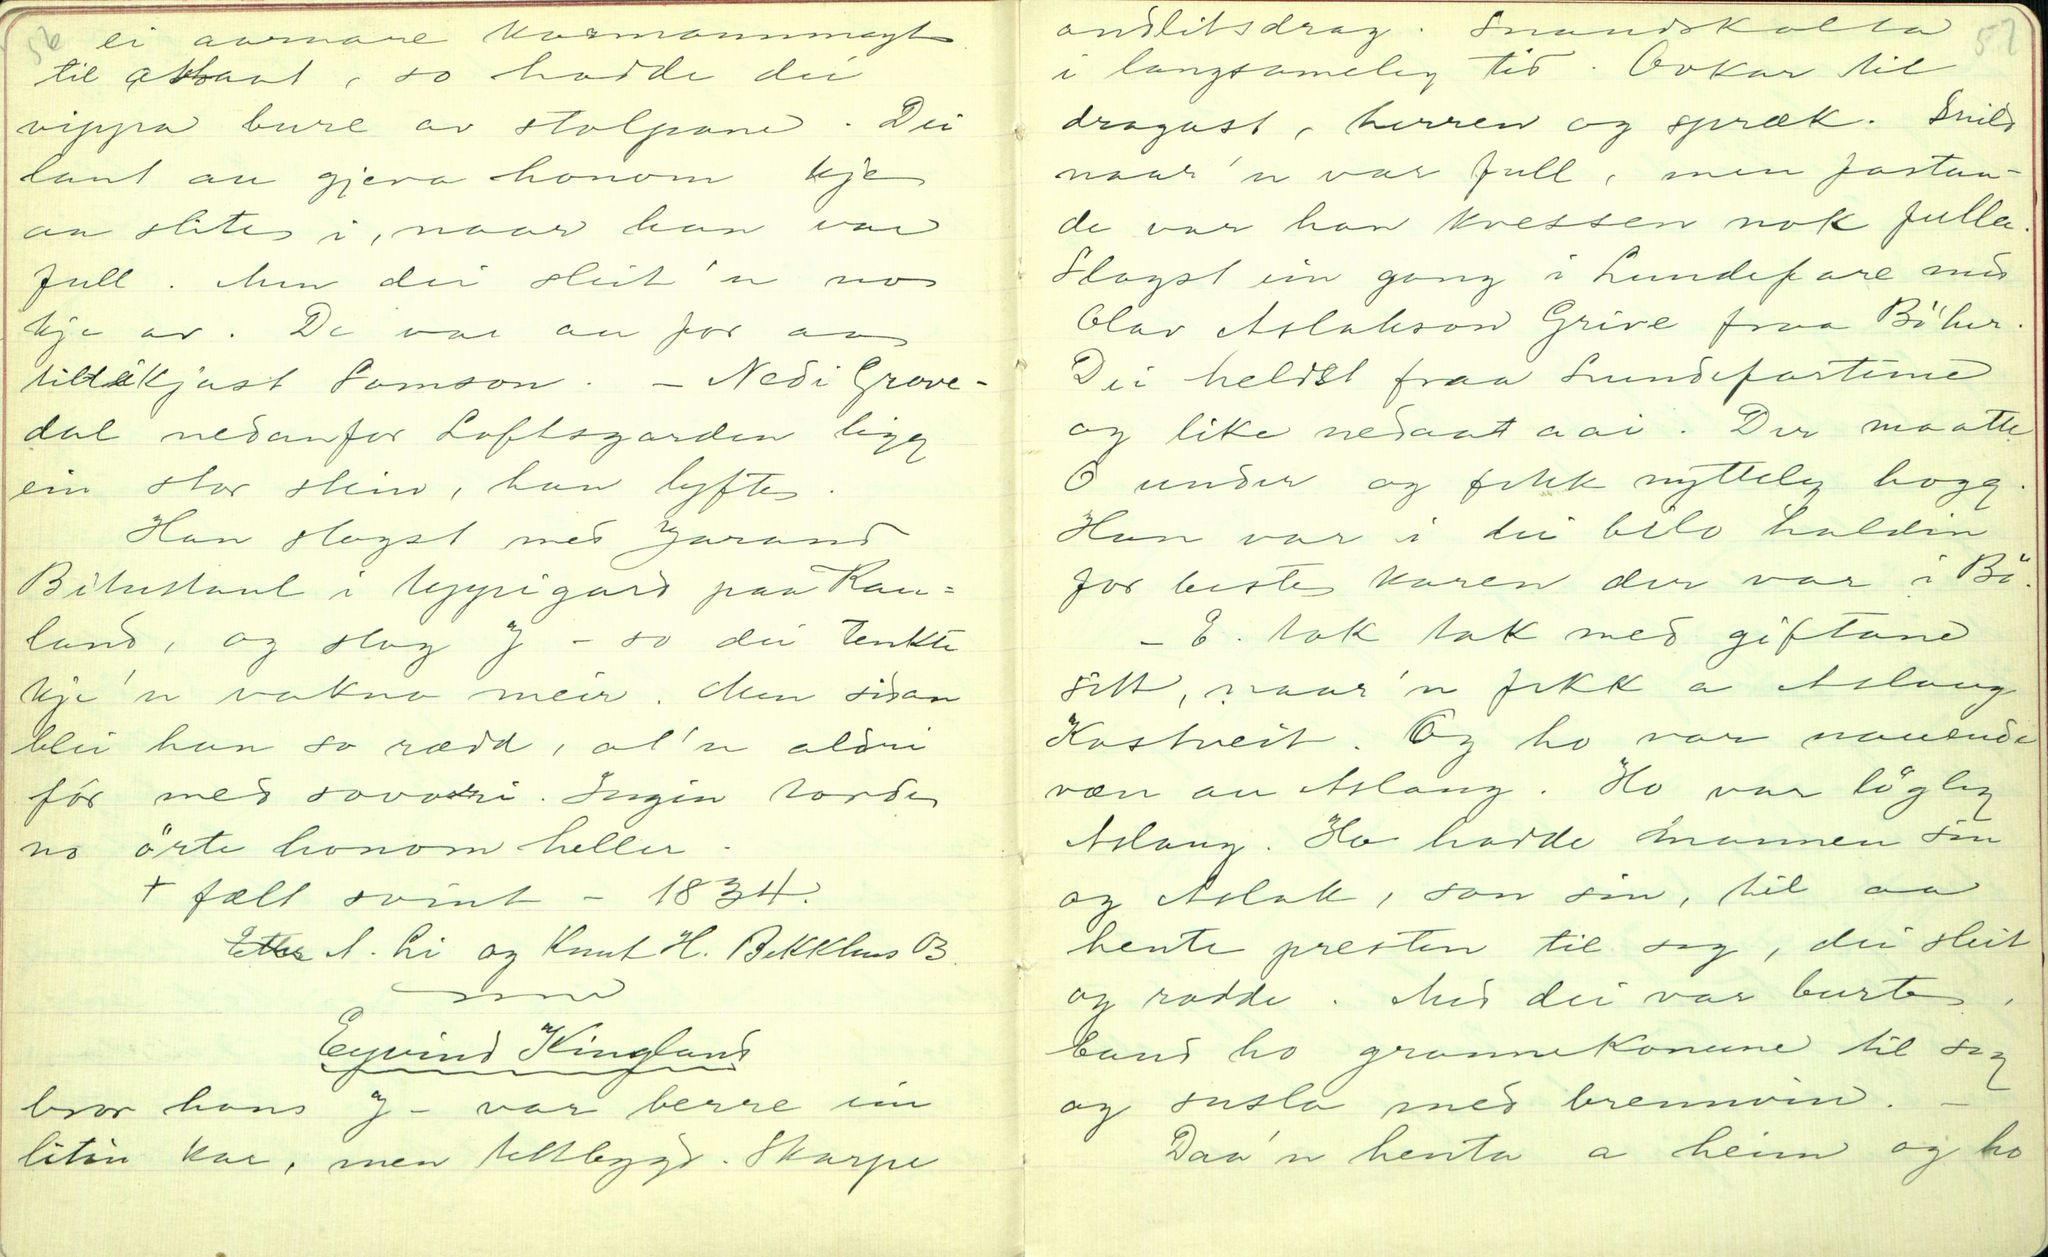 56
ei aarmare karmannmagt
til attaat, so hadde dei
vippa bure av stolpane. Dei
laut au gjeva honom kje
aa slite i, naar han var
full. Men dei sleit 'n no
kje av. De var au for aa
kjast Samson. – Nedi Grove-
dal nedanfor Loftsgarden ligg
ein stor stein, han lyfte.
Han slogst med Jarand
Bitustaul i Uppigard paa Rau=
land, og slog J – so dei tenkte
kje 'n vakna meir. Men sidan
blei han so rædd, at 'n aldri
fór med sovori. Ingin torde
no örte honom heller.
+ fælt svint – 1834.
Etter A. Li og Knut H. Bekkhus B.
Eyvind Kingland
bror hans J – var berre ein
litin kar, men tettbygd. Skarpe
57
andlitsdrag. Snaudskalla
i langsameleg tid. Ovkar til
dragast, herren og spræk. Snild
naar 'n var full, men fastan-
de var han kvessen nok fulla.
Slogst ein gong i Lundefare med
Olav Aslakson Grive fraa Böher.
Dei heldst fraa Lundefartine
og like nedaat aai. Der maatte
O under og fekk nytteleg hogg.
Han var i dei bilo haldin
for beste karen der var i Bö.
– E. tok tak med giftane
sitt, naar 'n fekk a Aslaug
Kostveit. Og ho var nauende
væn au Aslaug. Ho var lögleg
Aslaug. Ho hadde mannen sin
og Aslak, son sin, til aa
hente presten til seg, dei sleit
og rodde. Med dei var burte,
baud ho grannekonune til seg
og susla med brennvin. –
Daa 'n henta a heim og ho